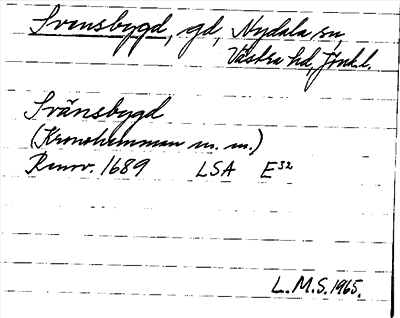 Svensbygd, gd, Nydala sn,
Västra hd, Jönk.l.
Svänsbygd
(Kronohemman m. m.)
Renov. 1689 LSA E³²
L.M.S. 1965.